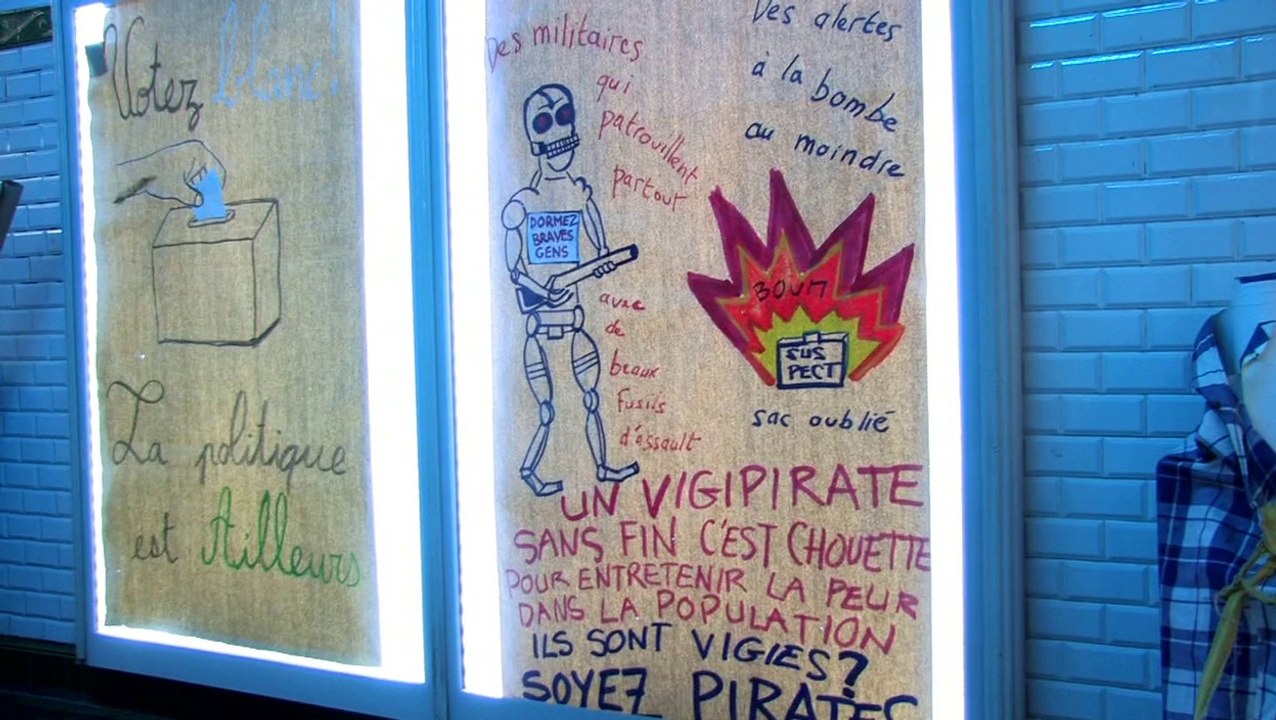 Votez blanc!
La politique
est Ailleurs
Des militaires
qui
patrouillent
partout
DORMEZ
BRAVES
GENS
avec
de
beaux
fusils
d'assault
Des alertes
à la bombe
au moindre
BOUM
SUS
PECT
sac oublié
UN VIGIPIRATE
SANS FIN C'EST CHOUETTE
POUR ENTRETENIR LA PEUR
DANS LA POPULATION
ILS SONT VIGIES?
SOYEZ PIRATES